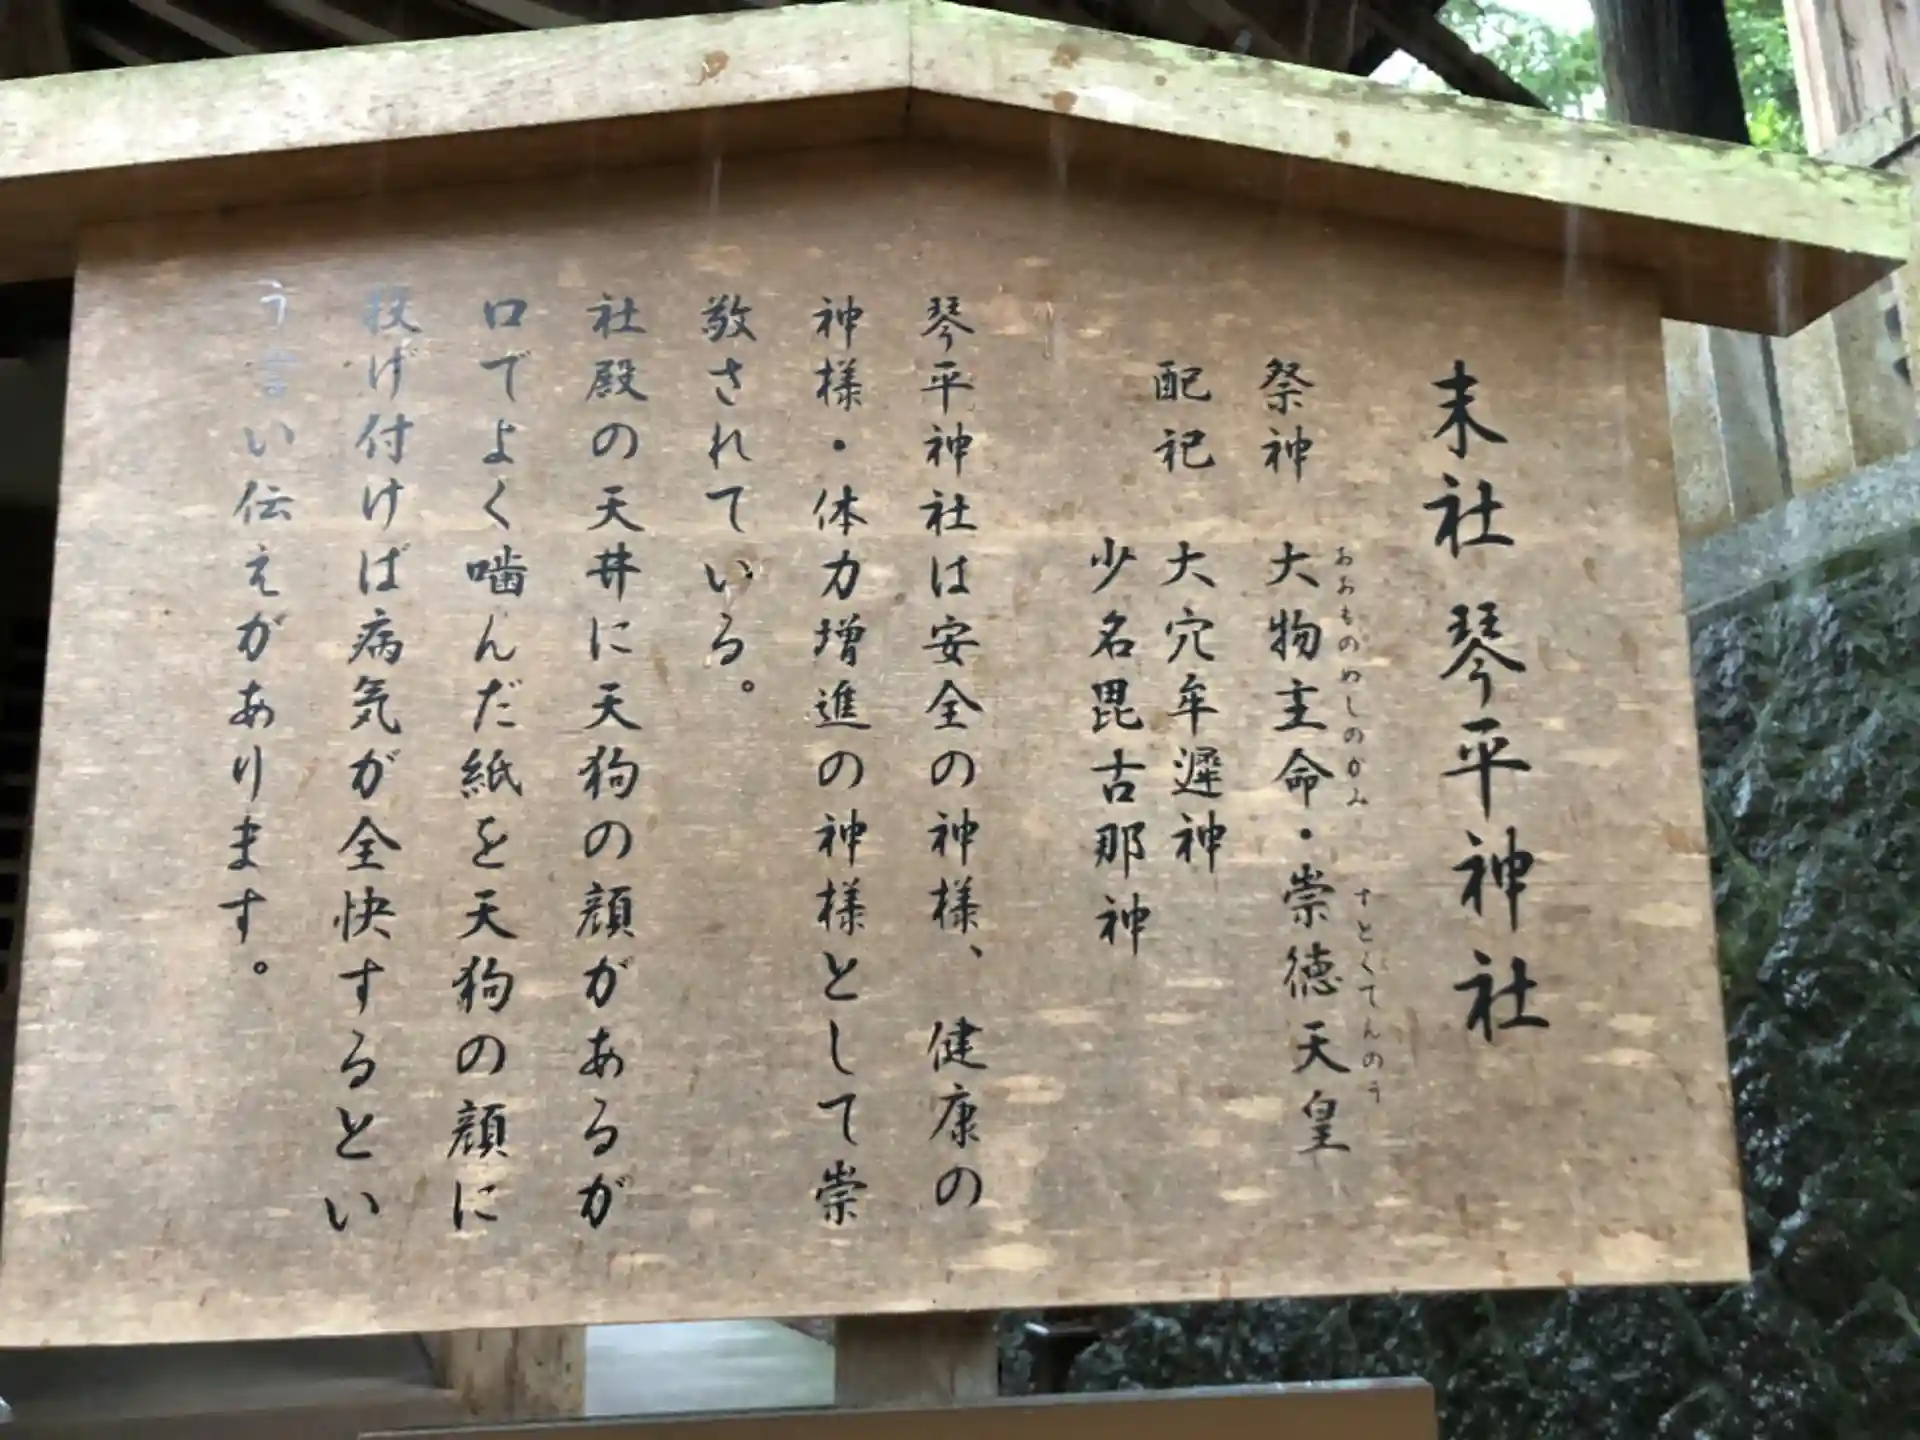 末社 琴平神社
祭神 大物主命・崇徳天皇
おおものぬしのかみ すとくてんのう
配祀 大穴牟遅神
少名毘古那神
琴平神社は安全の神様、健康の
神様・体力増進の神様として崇
敬されている。
社殿の天井に天狗の顔があるが
口でよく噛んだ紙を天狗の顔に
投げ付けば病気が全快するとい
う言い伝えがあります。